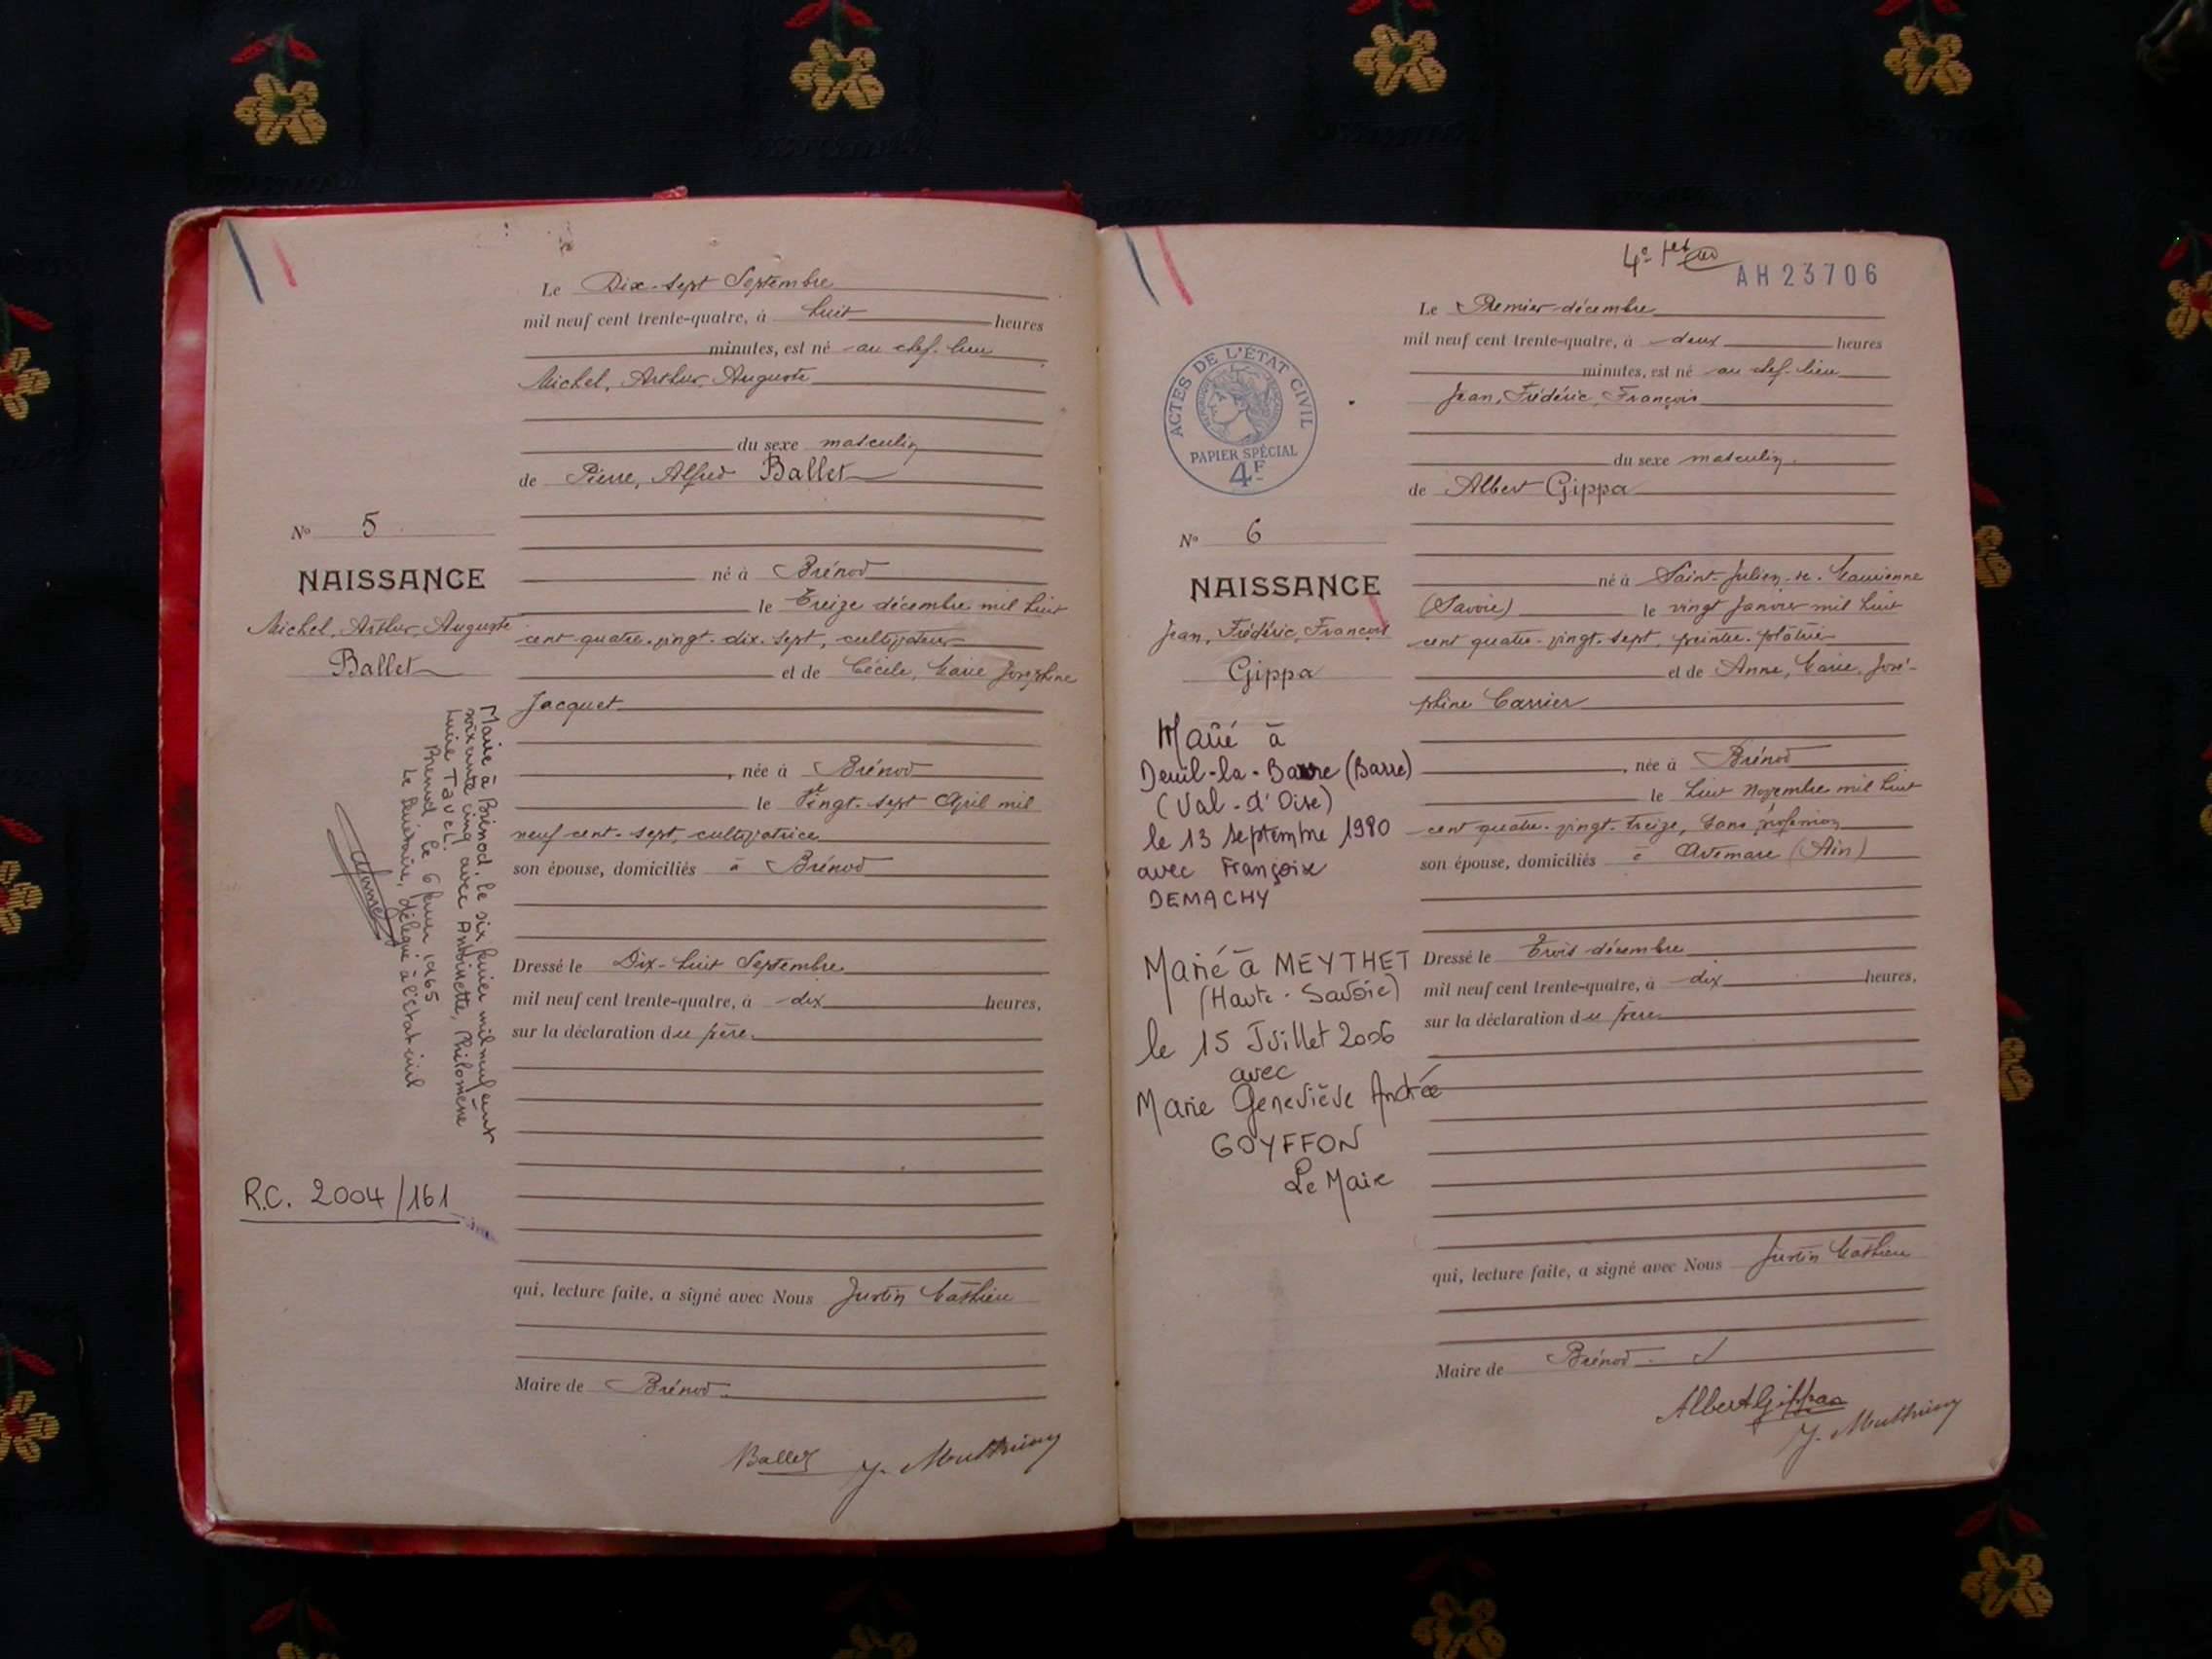 Le Dix-sept Septembre
mil neuf cent trente-quatre, à huit heures
minutes, est né au chef-lieu
Michel, Arthur, Auguste
du sexe masculin
de Pierre, Alfred Ballet
No 5
NAISSANCE
Michel, Arthur, Auguste
Ballet
né à Brénod
le treize décembre mil huit
cent quatre-vingt-dix-sept, cultivateur
et de Cécile, Marie Joséphine
Jacquet
, née à Brénod
le Vingt-sept April mil
neuf cent-sept, cultivatrice
son épouse, domiciliés à Brénod
Dressé le Dix-huit Septembre
mil neuf cent trente-quatre, à dix heures,
sur la déclaration du père.
qui, lecture faite, a signé avec Nous Justin Mathieu
Maire de Brénod.
Marié à Brénod, le six février mil neuf cent
soixante cinq avec Antoinette, Philomène
Tavel.
Brénod le 6 février 1965
Le Secrétaire, délégué à l'état civil
R.C. 2004/161
Ballet
4e
AH23706
Le Premier décembre
mil neuf cent trente-quatre, à deux heures
minutes, est né au chef-lieu
Jean, Frédéric, François
du sexe masculin.
de Albert Gippa
ACTES DE L'ÉTAT CIVIL
PAPIER SPÉCIAL
4F
No 6
NAISSANCE
Jean, Frédéric, François
Gippa
né à Saint-Julien-de-Maurienne
(Savoie) le vingt Janvier mil huit
cent quatre-vingt-sept, peintre-plâtrier
et de Anne, Marie, José-
phine Carrier
, née à Brénod
le huit Novembre mil huit
cent quatre-vingt-treize, sans profession
son épouse, domiciliés à Artemare (Ain)
Dressé le trois décembre
mil neuf cent trente-quatre, à dix heures,
sur la déclaration du père
qui, lecture faite, a signé avec Nous Justin Mathieu
Maire de Brénod.
Marié à
Deuil-la-Barre (Barre)
(Val-d'Oise)
le 13 septembre 1980
avec Françoise
DEMACHY
Marié à MEYTHET
(Haute-Savoie)
le 15 Juillet 2006
avec
Marie Geneviève Andrée
GOYFFON
Le Maire
Albert Gippa